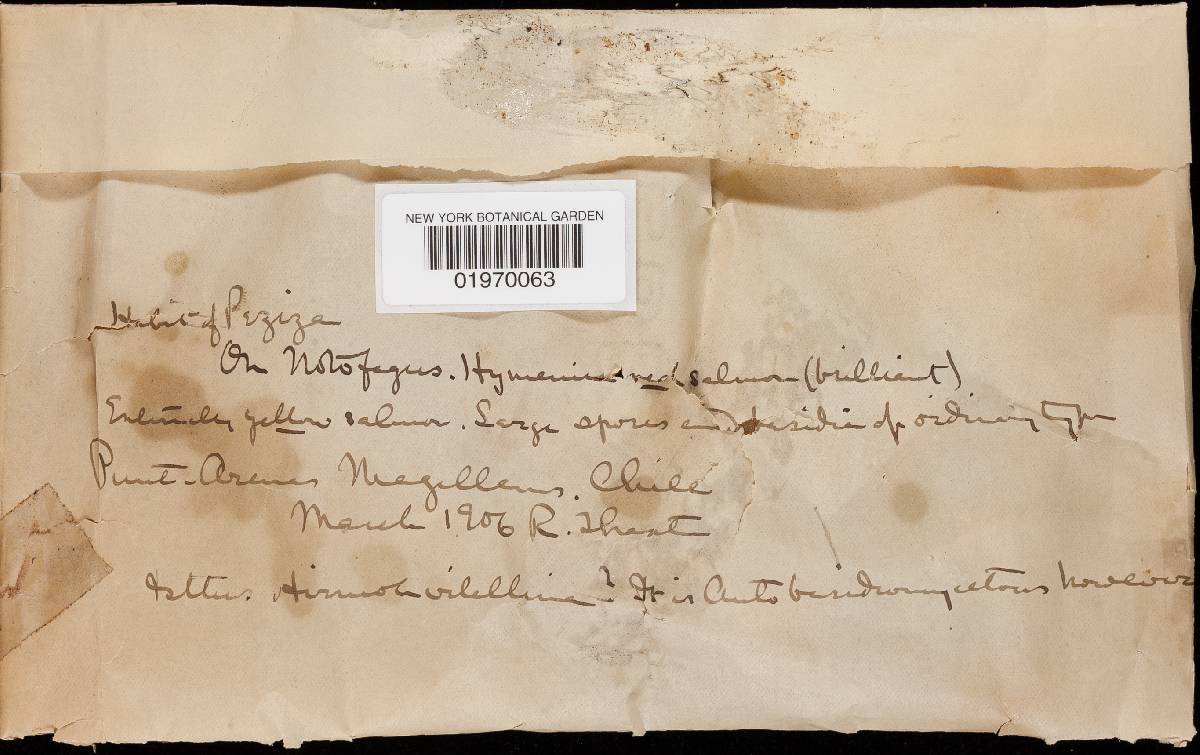 NEW YORK BOTANICAL GARDEN
01970063
Habit of Peziza
On Notofagus. Hymenium red salmon (brilliant)
Externally yellow salmon. Large spores and basidia of ordinary type
Punt-Arenas Magellans. Chile
March 1906 R. Thaxt
? It is Autobasidiomycetous however